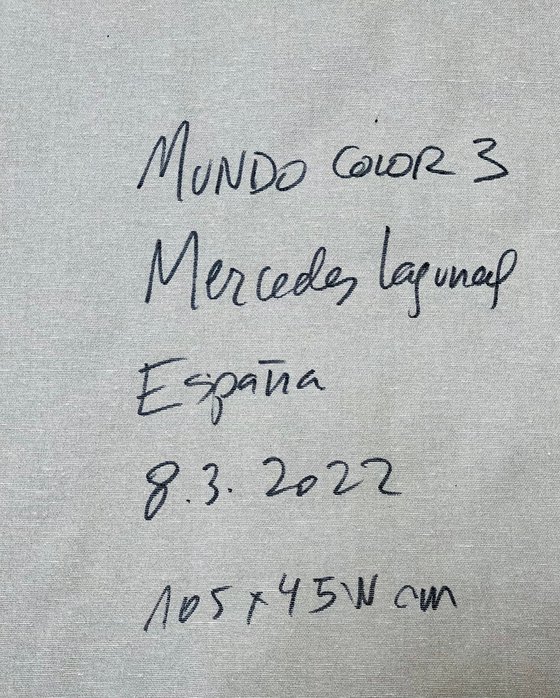 MUNDO COLOR 3
Mercedes Lagunas
España
8.3.2022
105 x 45 W cm